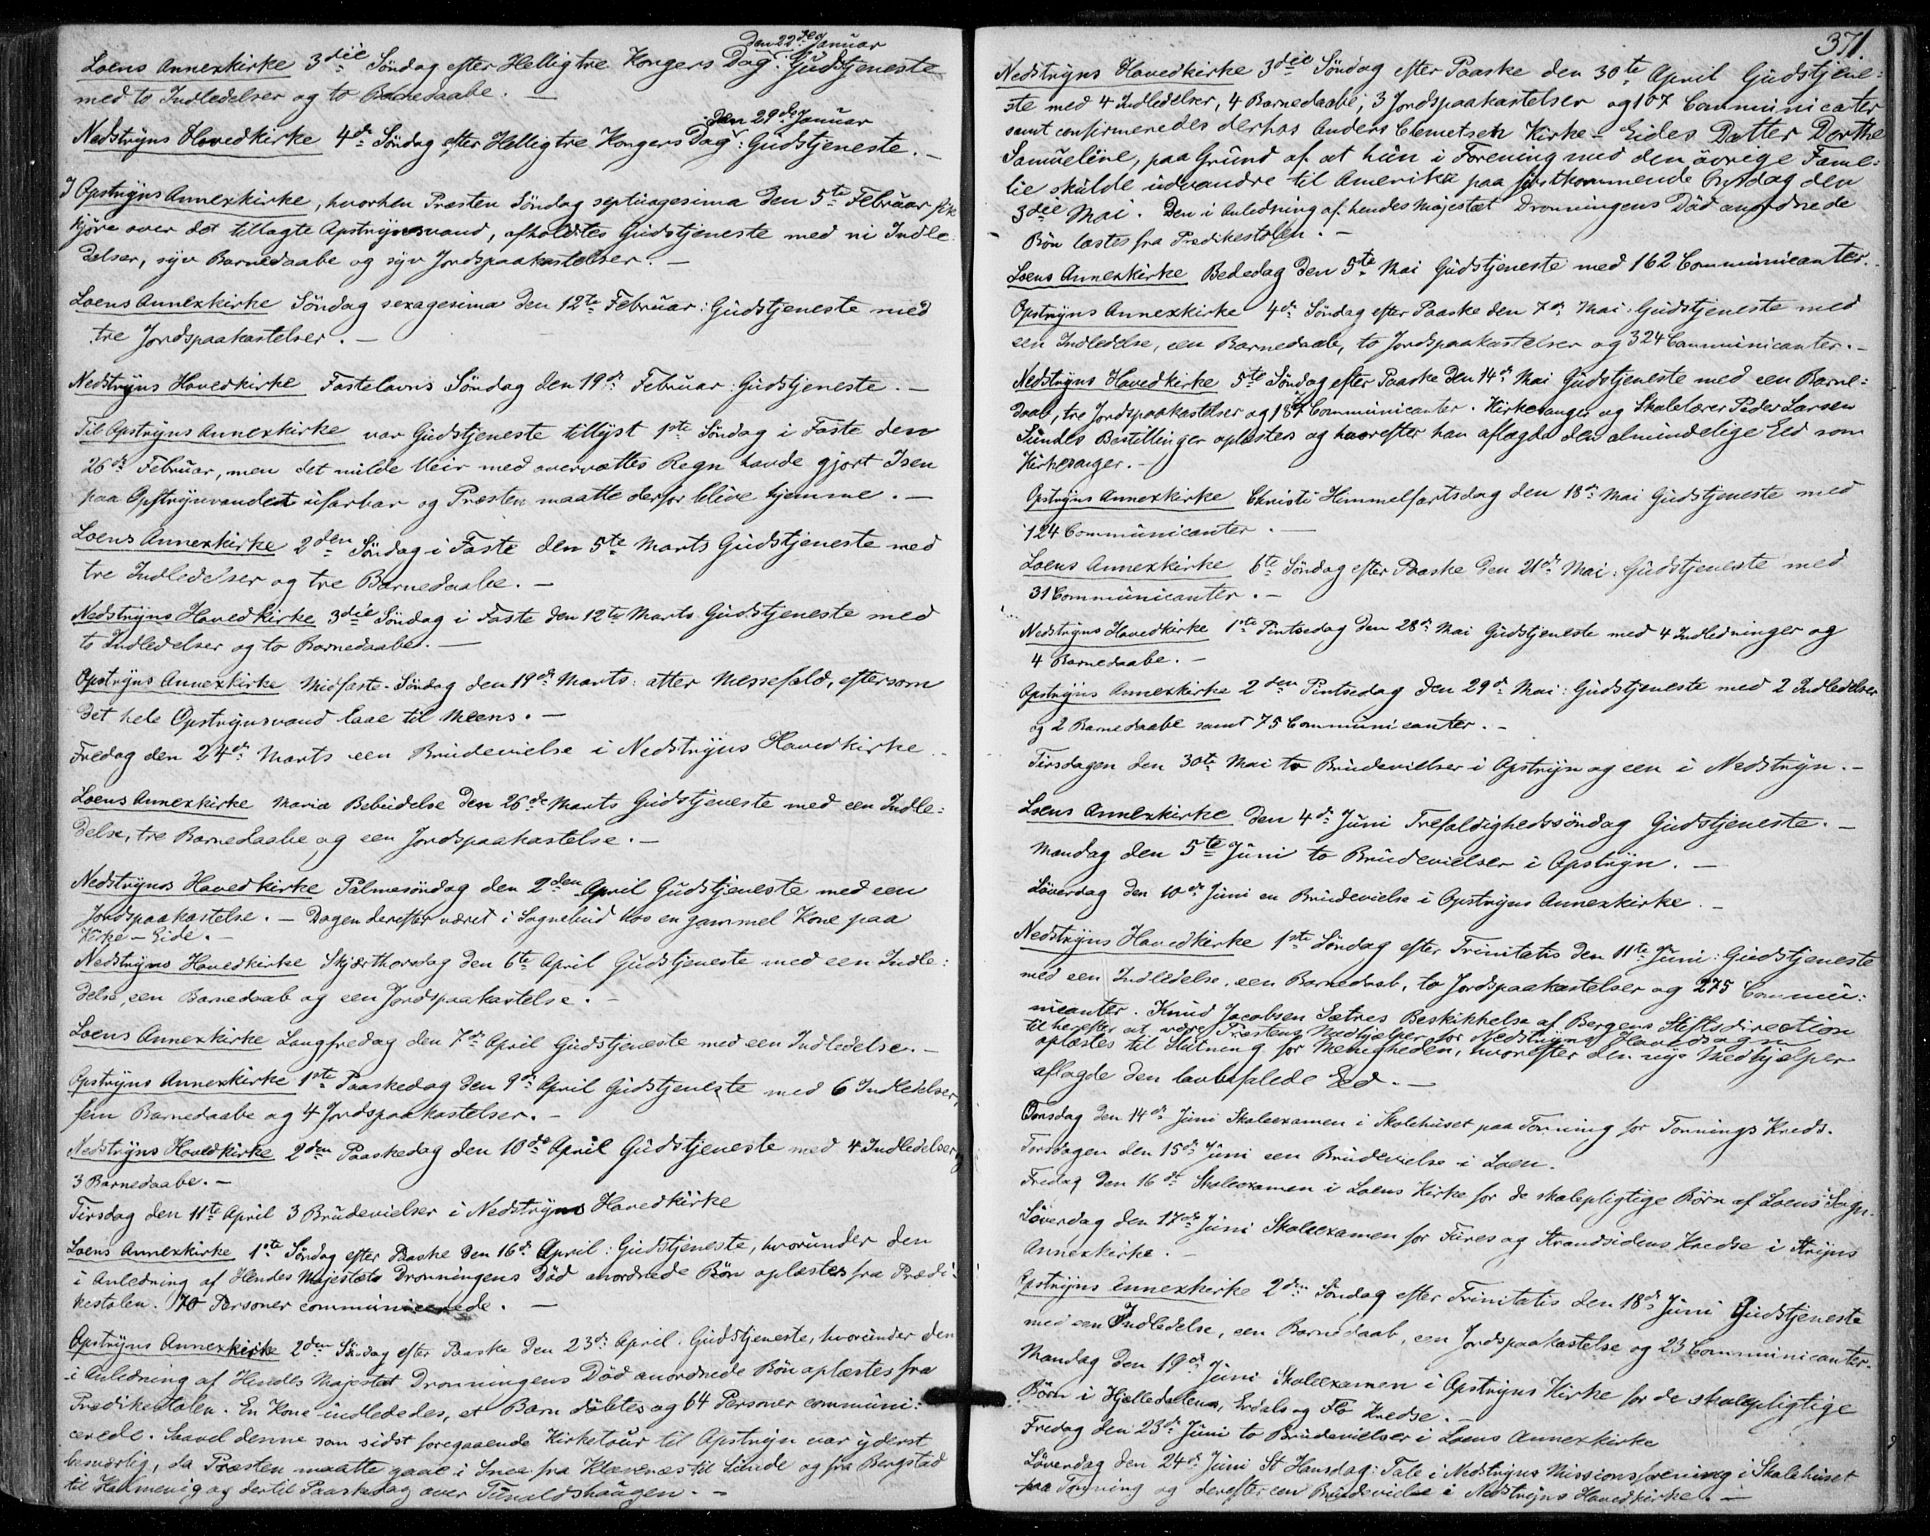 den 22de Januar
Loens Annexkirke 3die Søndag efter Helligtre Kongers Dag: Gudstjeneste
med to Indledelser og to Barnedaabe. —
den 29de Januar
Nedstryns Hovedkirke 4de Søndag efter Helligtre Kongers Dag: Gudstjeneste. —
I Opstryns Annexkirke, hvorhen Præsten Søndag septuagesima den 5te Februar fik
kjøre over det tillagte Opstrynsvand, afholdtes Gudstjeneste med ni Indle-
delser, syv Barnedaabe og syv Jordspaakastelser. —
Loens Annexkirke Søndag sexagesima den 12te Februar: Gudstjeneste med
tre Jordspaakastelser. —
Nedstryns Hovedkirke Fastelavns Søndag den 19de Februar: Gudstjeneste. —
Til Opstryns Annexkirke var Gudstjeneste tillyst 1ste Søndag i Faste den
26de Februar, men det milde Veir med overvættes Regn havde gjort Isen
paa Opstrynsvandet ufarbar og Præsten maatte derfor blive hjemme. —
Loens Annexkirke 2den Søndag i Faste den 5te Marts Gudstjeneste med
tre Indledelser og tre Barnedaabe. —
Nedstryns Hovedkirke 3die Søndag i Faste den 12te Marts Gudstjeneste med
to Indledelser og to Barnedaabe. —
Opstryns Annexkirke Midfaste-Søndag den 19de Marts: atter Messefald, eftersom
det hele Opstrynsvand laae til Meens. —
Fredag den 24de Marts een Brudevielse i Nedstryns Hovedkirke
Loens Annexkirke Maria Bebudelse den 26de Marts Gudstjeneste med een Indle-
delse, tre Barnedaabe og een Jordspaakastelse. —
Nedstryns Hovedkirke Palmesøndag den 2den April Gudstjeneste med een
Jordspaakastelse. — Dagen derefter været i Sognebud hos en gammel Kone paa
Kirke-Eide. —
Nedstryns Hovedkirke Skjærthorsdag den 6te April Gudstjeneste med een Indle-
delse, een Barnedaab og een Jordspaakastelse. —
Loens Annexkirke Langfredag den 7de April Gudstjeneste med een Indledelse. —
Opstryns Annexkirke 1ste Paaskedag den 9de April Gudstjeneste med 6 Indledelser,
fem Barnedaabe og 4 Jordspaakastelser. —
Nedstryns Hovedkirke 2den Paaskedag den 10de April Gudstjeneste med 4 Indledelser og
3 Barnedaabe. —
Tirsdag den 11te April 3 Brudevielser i Nedstryns Hovedkirke
Loens Annexkirke 1ste Søndag efter Paaske den 16de April: Gudstjeneste, hvorunder den
i Anledning af Hendes Majestæts Dronningens Død anordnede Bøn oplæstes fra Prædi-
kestolen. 70 Personer communicerede. —
Opstryns Annexkirke 2den Søndag efter Paaske den 23de April: Gudstjeneste, hvorunder den
i Anledning af Hendes Majestæt Dronningens Død anordnede Bøn oplæstes fra
Prædikestolen. En Kone indlededes, et Barn døbtes og 64 Personer communi-
cerede. Saavel denne som sidst foregaaende Kirketour til Opstryn var yderst
besværlig, da Præsten maatte gaae i Snee fra Klævenæs til Sunde og fra Bergstad
til Hahmevig og dertil Paaskedag over Tunoldshaugen. —
371.
Nedstryns Hovedkirke 3die Søndag efter Paaske den 30te April Gudstjene-
ste med 4 Indledelser, 4 Barnedaabe, 3 Jordspaakastelser og 107 Communicanter
samt confirmeredes derhos Anders Clemetsen Kirke-Eides Datter Dorthe
Samueline, paa Grund af at hun i Forening med den øvrige Fami-
lie skulde udvandre til Amerika paa førstkommende Onsdag den
3die Mai. Den i Anledning af hendes Majestæt Dronningens Død anordnede
Bøn læstes fra Prædikestolen. —
Loens Annexkirke Bededag den 5te Mai Gudstjeneste med 162 Communicanter.
Opstryns Annexkirke 4de Søndag efter Paaske den 7de Mai: Gudstjeneste med
een Indledelse, een Barnedaab, to Jordspaakastelser og 324 Communicanter. —
Nedstryns Hovedkirke 5te Søndag efter Paaske den 14de Mai Gudstjeneste med een Barne-
daab, tre Jordspaakastelser og 187 Communicanter. Kirkesanger og Skolelærer Peder Larsen
Sundes Bestillinger oplæstes og hvorefter han aflagde den almindelige Eed som
Kirkesanger. —
Opstryns Annexkirke Christi Himmelfartsdag den 18de Mai Gudstjeneste med
124 Communicanter. —
Loens Annexkirke 6te Søndag efter Paaske den 21de Mai: Gudstjeneste med
31 Communicanter. —
Nedstryns Hovedkirke 1ste Pintsedag den 28de Mai Gudstjeneste med 4 Indledninger og
4 Barnedaabe. —
Opstryns Annexkirke 2den Pintsedag den 29de Mai: Gudstjeneste med 2 Indledelser
og 2 Barnedaabe samt 75 Communicanter. —
Tirsdagen den 30te Mai to Brudevielser i Opstryn og een i Nedstryn. —
Loens Annexkirke den 4de Juni Trefoldighedssøndag Gudstjeneste. —
Mandag den 5te Juni to Brudevielser i Opstryn. —
Løverdag den 10de Juni en Brudevielse i Opstryns Annexkirke. —
Nedstryns Hovedkirke 1ste Søndag efter Trinitatis den 11te Juni: Gudstjeneste
med een Indledelse, een Barnedaab, to Jordspaakastelser og 275 Commu-
nicanter. Knud Jacobsen Sætres Beskikkelse af Bergens Stiftsdirection
til herefter at være Præstens Medhjælper for Nedstryns Hovedsogn
oplæstes til Slutning for Menigheden, hvorefter den nye Medhjælper
aflagde den lovbefalede Eed. —
Onsdag den 14de Juni Skoleexamen i Skolehuset paa Tonning for Tonnings Kreds.
Torsdagen den 15de Juni een Brudevielse i Loen.
Fredag den 16de Skoleexamen i Loens Kirke for de skolepligtige Børn af Loens Sogn.
Løverdag den 17de Juni Skoleexamen for Fures og Strandsidens Kredse i Stryns
Annexkirke. —
Opstryns Annexkirke 2den Søndag efter Trinitatis den 18de Juni Gudstjeneste
med een Indledelse, een Barnedaab, een Jordspaakastelse og 23 Communicanter.
Mandag den 19de Juni Skoleexamen i Opstryns Kirke for de skolepligtige
Børn i Hjelledalens, Erdals og Flo Kredse. —
Fredag den 23de Juni to Brudevielser i Loens Annexkirke
Løverdag den 24de Juni St Hansdag: Tale i Nedstryns Missionsforening i Skolehuset
paa Tonning og derefter een Brudevielse i Nedstryns Hovedkirke. —